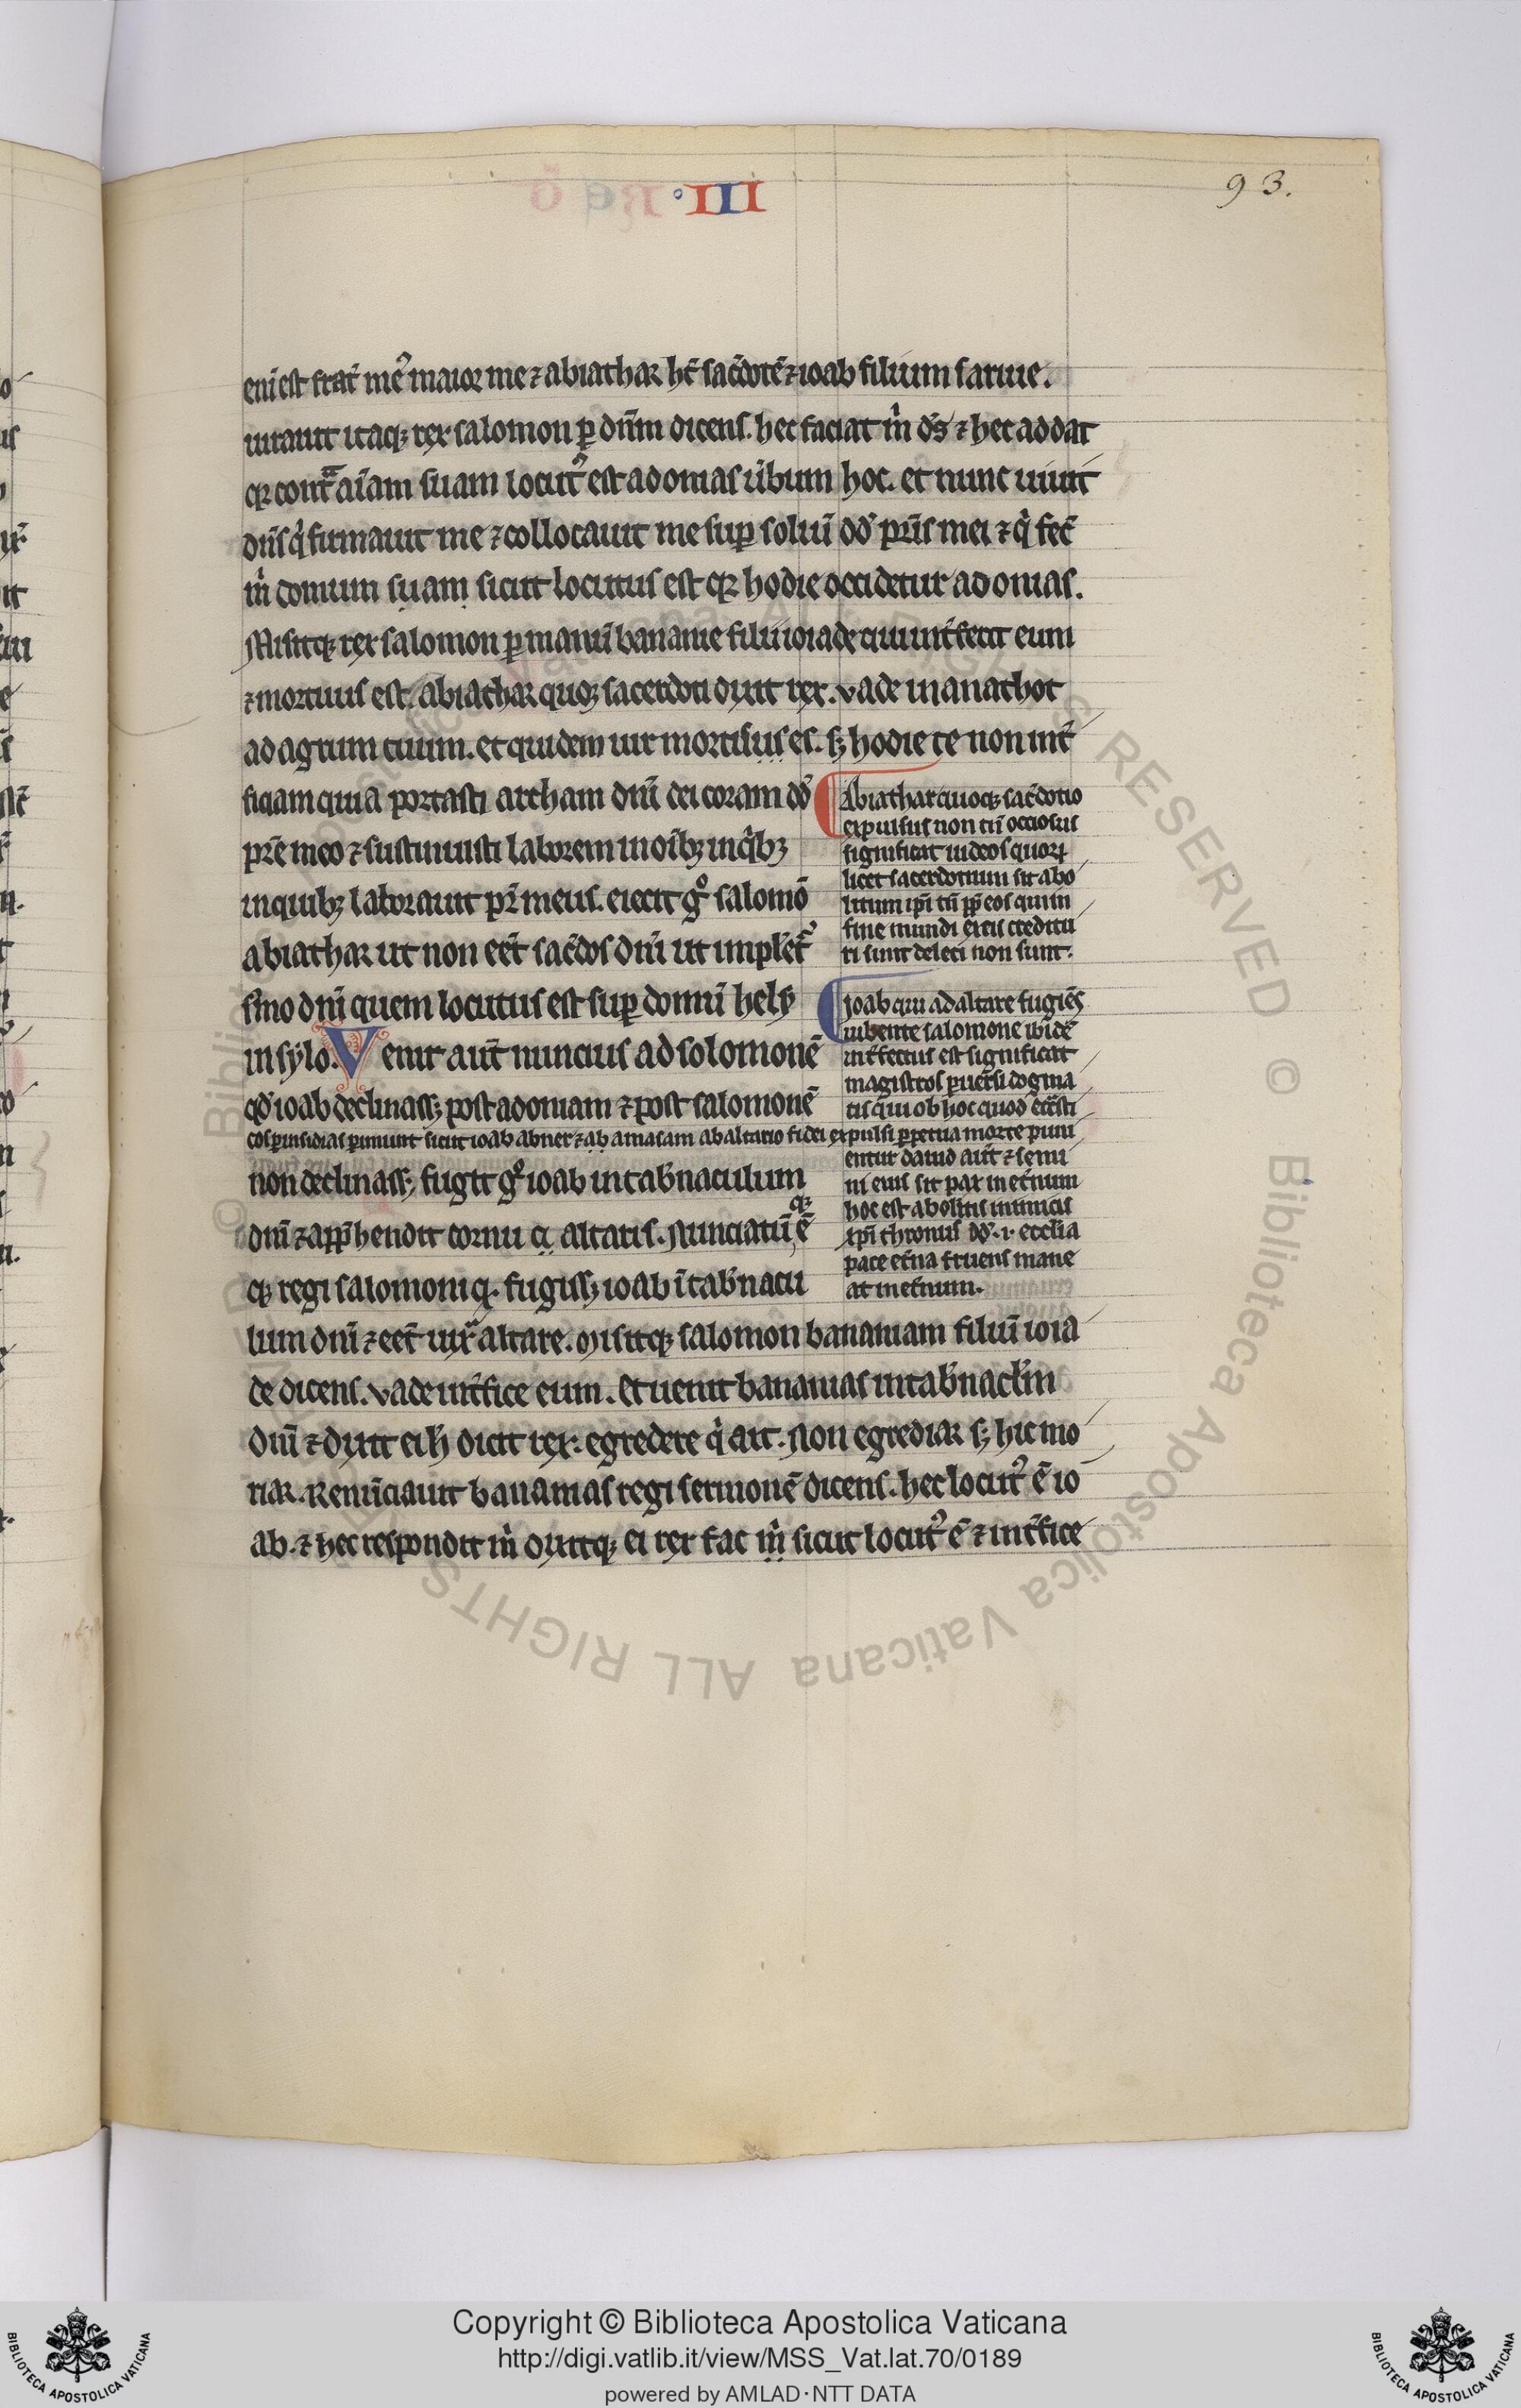 III.
93.
eni est frat̄ me᷒ maior me ⁊ abiathar hт̄ sac̄dotē ⁊ ioab filium saruie.
iurauit itaqꝫ rex salomon ꝑ dn̄m dicens. hec faciat m̄ ds̄ ⁊ hec addat
qꝛ cont̄ᵃ aīam suam locut᷒ est adonias ūbum hoc. et nunc uiuit
dn̄s qͥ firmauit me ⁊ collocauit me suꝑ soliū dd̄ pr̄is mei ⁊ qͥ fec̄
m̄ domum suam sicut locutus est qꝛ hodie occidetur adonias.
Misitqꝫ rex salomon ꝑ manū bananie filii ioiade qui int̄fecit eum
⁊ mortuus est. abiathar quoqꝫ sacerdoti dixit rex. vade in anathot
ad agrum tuum. et quidem uir mortis uis es. sꝫ hodie te non int̄
ficiam quia portasti archam dn̄i dei coram dd̄
pr̄e meo ⁊ sustinuisti laborem in oībꝫ in qͥbꝫ
in quibꝫ laborauit pr̄ meus. eiecit gͦ salomō
abiathar ut non eēt sac̄dos dn̄i ut implet᷒
s̄mo dn̄i quem locutus est suꝑ domū hely
in sylo. Venit aūt nuncius ad solomonē
qd̄ ioab declinassꝫ post adoniam ⁊ post salomonē
non declinassꝫ fugit gͦ ioab in tab̄naculum
dn̄i ⁊ app̄hendit cornu ci altaris. Nunciatū ē
qꝫ
qꝫ regi salomoni q. fugissꝫ ioab ī tab̄nacu
lum dn̄i ⁊ eēt iuxᵃ altare. misitqꝫ salomon bananiam filiū ioia
de dicens. vade int̄fice eum. Et uenit bananias in tab̄nac̄lm
dn̄i ⁊ dixit ei h̄ dicit rex. egredere qͥ ait. Non egrediar sꝫ hic mo
riar. Renūciauit bananias regi sermonē dicens. hec locut᷒ ē io
ab. ⁊ hec respondit m̄ dixitqꝫ ei rex fac m̄ sicut locut᷒ ē ⁊ int̄fice
Abiathar quoqꝫ sac̄dotio
expulsus non tn̄ occiosus
significat iudeos quoꝝ
licet sacerdotium sit abo
litum ipī tn̄ ꝓp̄ eos qui in
fine mundi ex eis creditu
ri sunt deleti non sunt.
Ioab qui ad altare fugiēs
iubente salomone ibidē
int̄fectus est significat
magistros ꝑuersi dogma
tis qui ob hoc quod eccl̄asti
cos ꝑ insidias ꝑimunt sicut ioab abner ⁊ ab amasam ab altario fidei expulsi ꝑpetua morte puni
entur dauid aūt ⁊ semi
ni eius sit pax in et̄num
hoc est abolitis inimicis
xpī thronus dd̄ .i. eccl̄ia
pace et̄na fruens mane
at in et̄num.
Copyright © Biblioteca Apostolica Vaticana
http://digi.vatlib.it/view/MSS_Vat.lat.70/0189
powered by AMLAD·NTT DATA
BIBLIOTECA APOSTOLICA VATICANA
BIBLIOTECA APOSTOLICA VATICANA